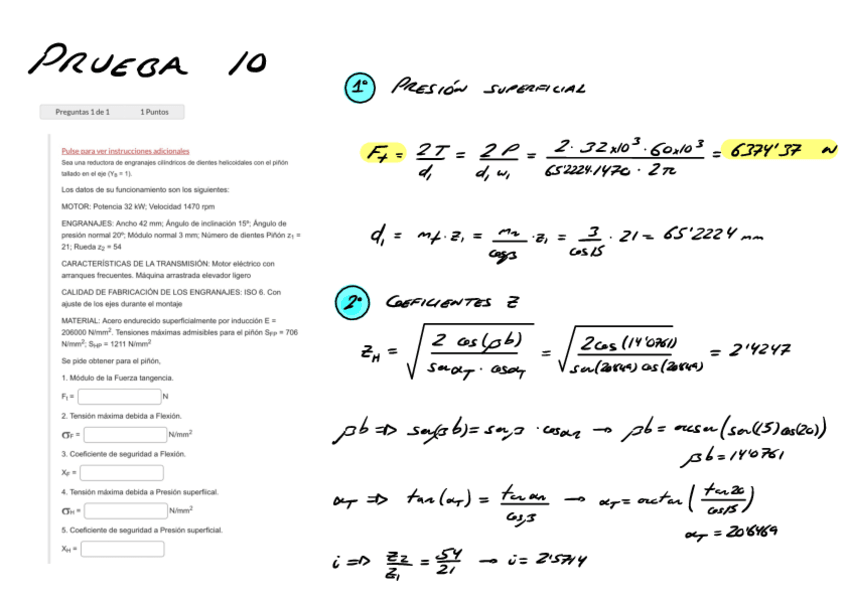 PRUEBA 10
Preguntas 1 de 1 1 Puntos
Pulse para ver instrucciones adicionales
Sea una reductora de engranajes cilíndricos de dientes helicoidales con el piñón
tallado en el eje (Yᵦ = 1).
Los datos de su funcionamiento son los siguientes:
MOTOR: Potencia 32 kW; Velocidad 1470 rpm
ENGRANAJES: Ancho 42 mm; Ángulo de inclinación 15º; Ángulo de
presión normal 20º; Módulo normal 3 mm; Número de dientes Piñón z₁ =
21; Rueda z₂ = 54
CARACTERÍSTICAS DE LA TRANSMISIÓN: Motor eléctrico con
arranques frecuentes. Máquina arrastrada elevador ligero
CALIDAD DE FABRICACIÓN DE LOS ENGRANAJES: ISO 6. Con
ajuste de los ejes durante el montaje
MATERIAL: Acero endurecido superficialmente por inducción E =
206000 N/mm². Tensiones máximas admisibles para el piñón S_FP = 706
N/mm²; S_HP = 1211 N/mm²
Se pide obtener para el piñón,
1. Módulo de la Fuerza tangencia.
Fₜ = N
2. Tensión máxima debida a Flexión.
σ_F = N/mm²
3. Coeficiente de seguridad a Flexión.
X_F =
4. Tensión máxima debida a Presión superficial.
σ_H = N/mm²
5. Coeficiente de seguridad a Presión superficial.
X_H =
1º PRESIÓN SUPERFICIAL
F_t = 2T/d₁ = 2P/d₁w₁ = 2·32x10³·60x10³/65'2224·1470·2π = 6374'37 N
d₁ = m_t·z₁ = m_n/cosβ ·z₁ = 3/cos15 · 21 = 65'2224 mm
2º COEFICIENTES Z
Z_H = √(2 cos(βb)/senα_T · cosα_T) = √(2cos(14'0761)/sen(20'6469)cos(20'6469)) = 2'4247
βb => sen(βb) = senβ · cosαn → βb = arcsen(sen(15)cos(20))
βb = 14'0761
α_T => tan(α_T) = tanαn/cosβ → α_T = arctan(tan20/cos15)
α_T = 20'6469
i => z₂/z₁ = 54/21 → i = 2'5714